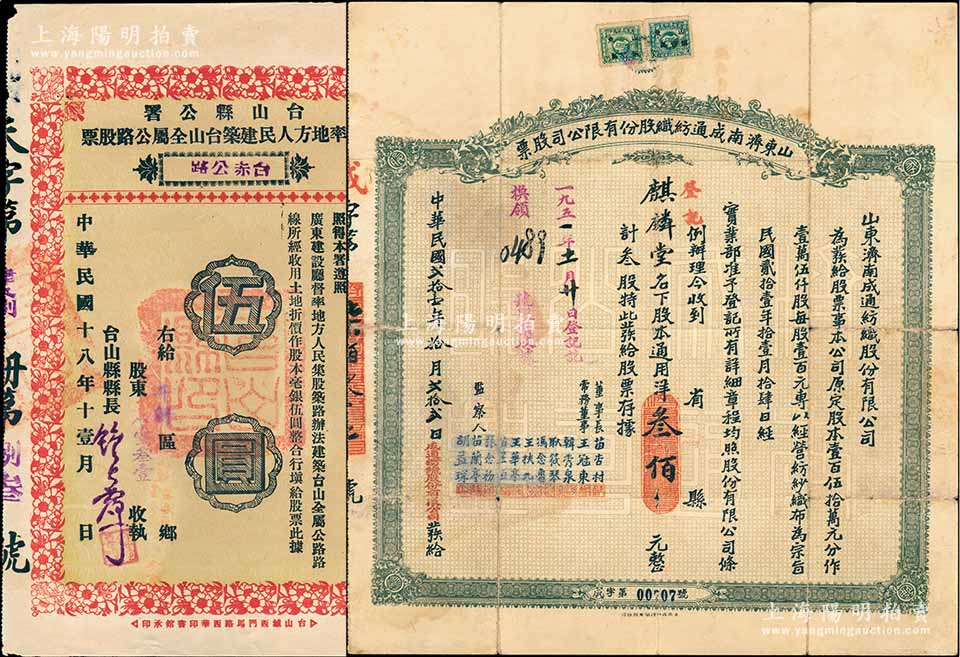 上海陽明拍賣
www.yangmingauction.com
台山縣公署
率地方人民建築台山全屬公路股票
台赤公路
照得本署遵照
廣東建設廳督率地方人民集股築路辦法建築台山全屬公路路
線所經收用土地折價作股本毫銀伍圓整合行填給股票此據
伍
圓
右給
區
鄉
股東
收執
台山縣縣長
中華民國十八年十壹月
日
字第
號
台山城西門馬路西華印書館承印
山東濟南成通紡織股份有限公司股票
山東濟南成通紡織股份有限公司
為發給股票事本公司原定股本壹百伍拾萬元分作
壹萬伍仟股每股壹百元專以經營紡紗織布為宗旨
民國貳拾壹年拾壹月拾肆日經
實業部准予登記所有詳細章程均照股份有限公司條
例辦理今收到
省
縣
登記
麒麟堂名下股本通用洋叁佰
元整
計叁股持此發給股票存據
董事長 苗杏村
常務董事 王冠東
韓秀泉
耿筱琴
馮念魯
王扶九
王華亭
監察人
苗蘭亭
胡益琛
發給
中華民國
年
月
日
一九五一年
月
日登記訖
換領
0489
號
成字第00207號
上海陽明拍賣
www.yangmingauction.com
上海陽明拍賣
www.yangmingauction.com